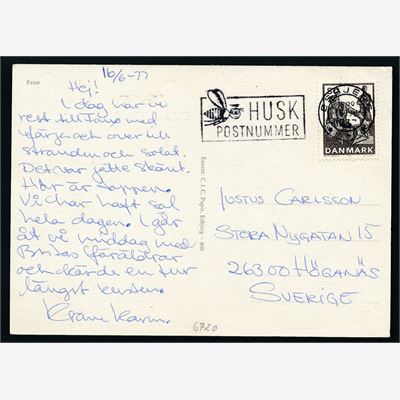 16/6-77
Fanø
Hej!
I dag har vi
rest till Fanø med
färja och over till
stranden och solat.
Det var jätte skönt.
Här är toppen.
Vi har haft sol
hela dagen. I går
åt vi middag med
Britas föräldrar
och körde en tur
längst kusten.
Kram Karin.
Eneret: C.I.C. Papir, Esbjerg - 806
HUSK
POSTNUMMER
ESBJERG
DANMARK
JUSTUS CARLSSON
STORA NYGATAN 15
26300 HÖGANÄS
SVERIGE
6720